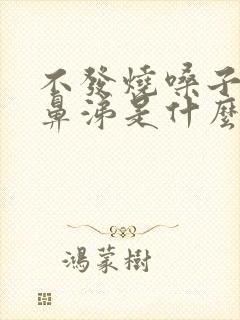 不發燒嗓子
鼻涕是什麼
鴻蒙樹